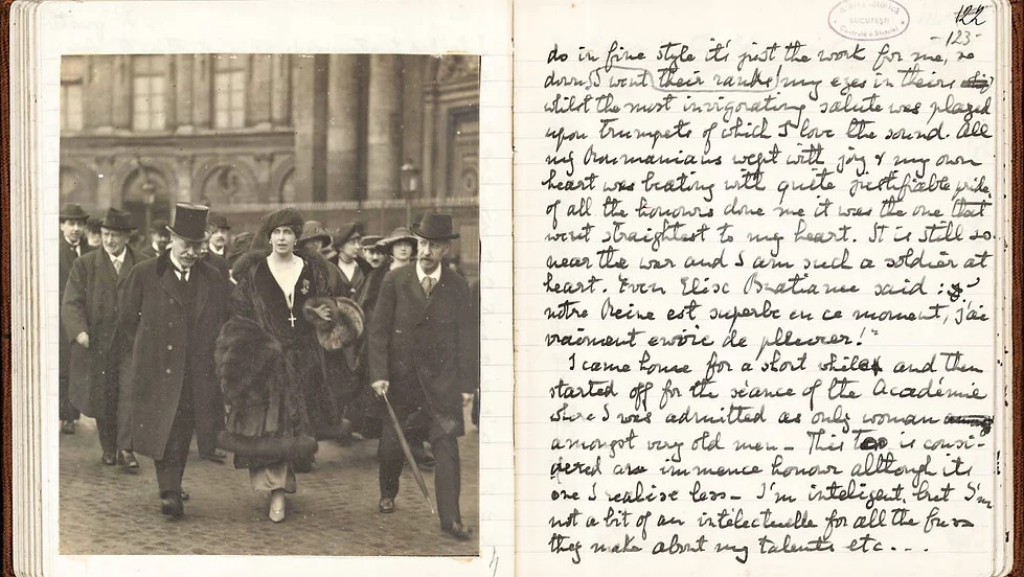 ARHIVA ISTORICĂ
BUCUREȘTI
Centrală a Statului
122
-123-
do in fine style it's just the work for me, so
down I went their ranks my eyes in theirs
whilst the most invigorating salute was played
upon trumpets of which I love the sound. All
my Roumanians wept with joy & my own
heart was beating with quite justifiable pride
of all the honours done me it was the one that
went straightest to my heart. It is still so
near the war and I am such a soldier at
heart. Even Elise Bratianu said :
notre Reine est superbe en ce moment, j'ai
vraiment envie de pleurer!"
I came home for a short while and then
started off for the séance of the Académie
where I was admitted as only woman
amongst very old men – This too is consi-
dered an immence honour although its
one I realise less – I'm inteligent, but I'm
not a bit of an intelectuelle for all the fuss
they make about my talents etc...